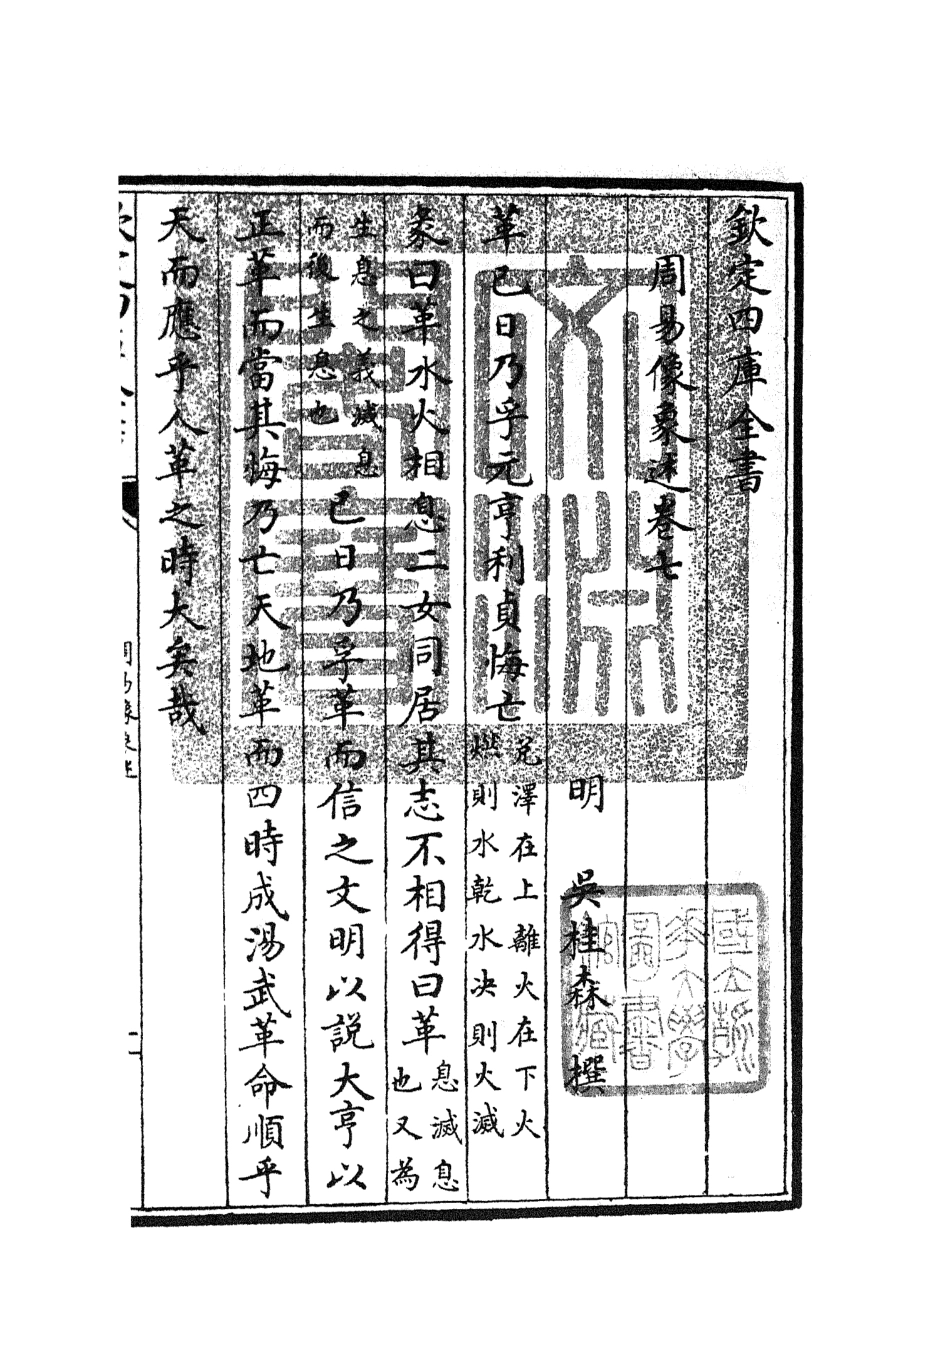 欽定四庫全書
周易像象述卷七
明 吳桂森 撰
革已日乃孚元亨利貞悔亡
兌澤在上離火在下火
燃則水乾水决則火滅
彖曰革水火相息二女同居其志不相得曰革
息滅息
也又為
生息之義滅息
而後生息也
已日乃孚革而信之文明以説大亨以
正革而當其悔乃亡天地革而四時成湯武革命順乎
天而應乎人革之時大矣哉
文淵閣寶